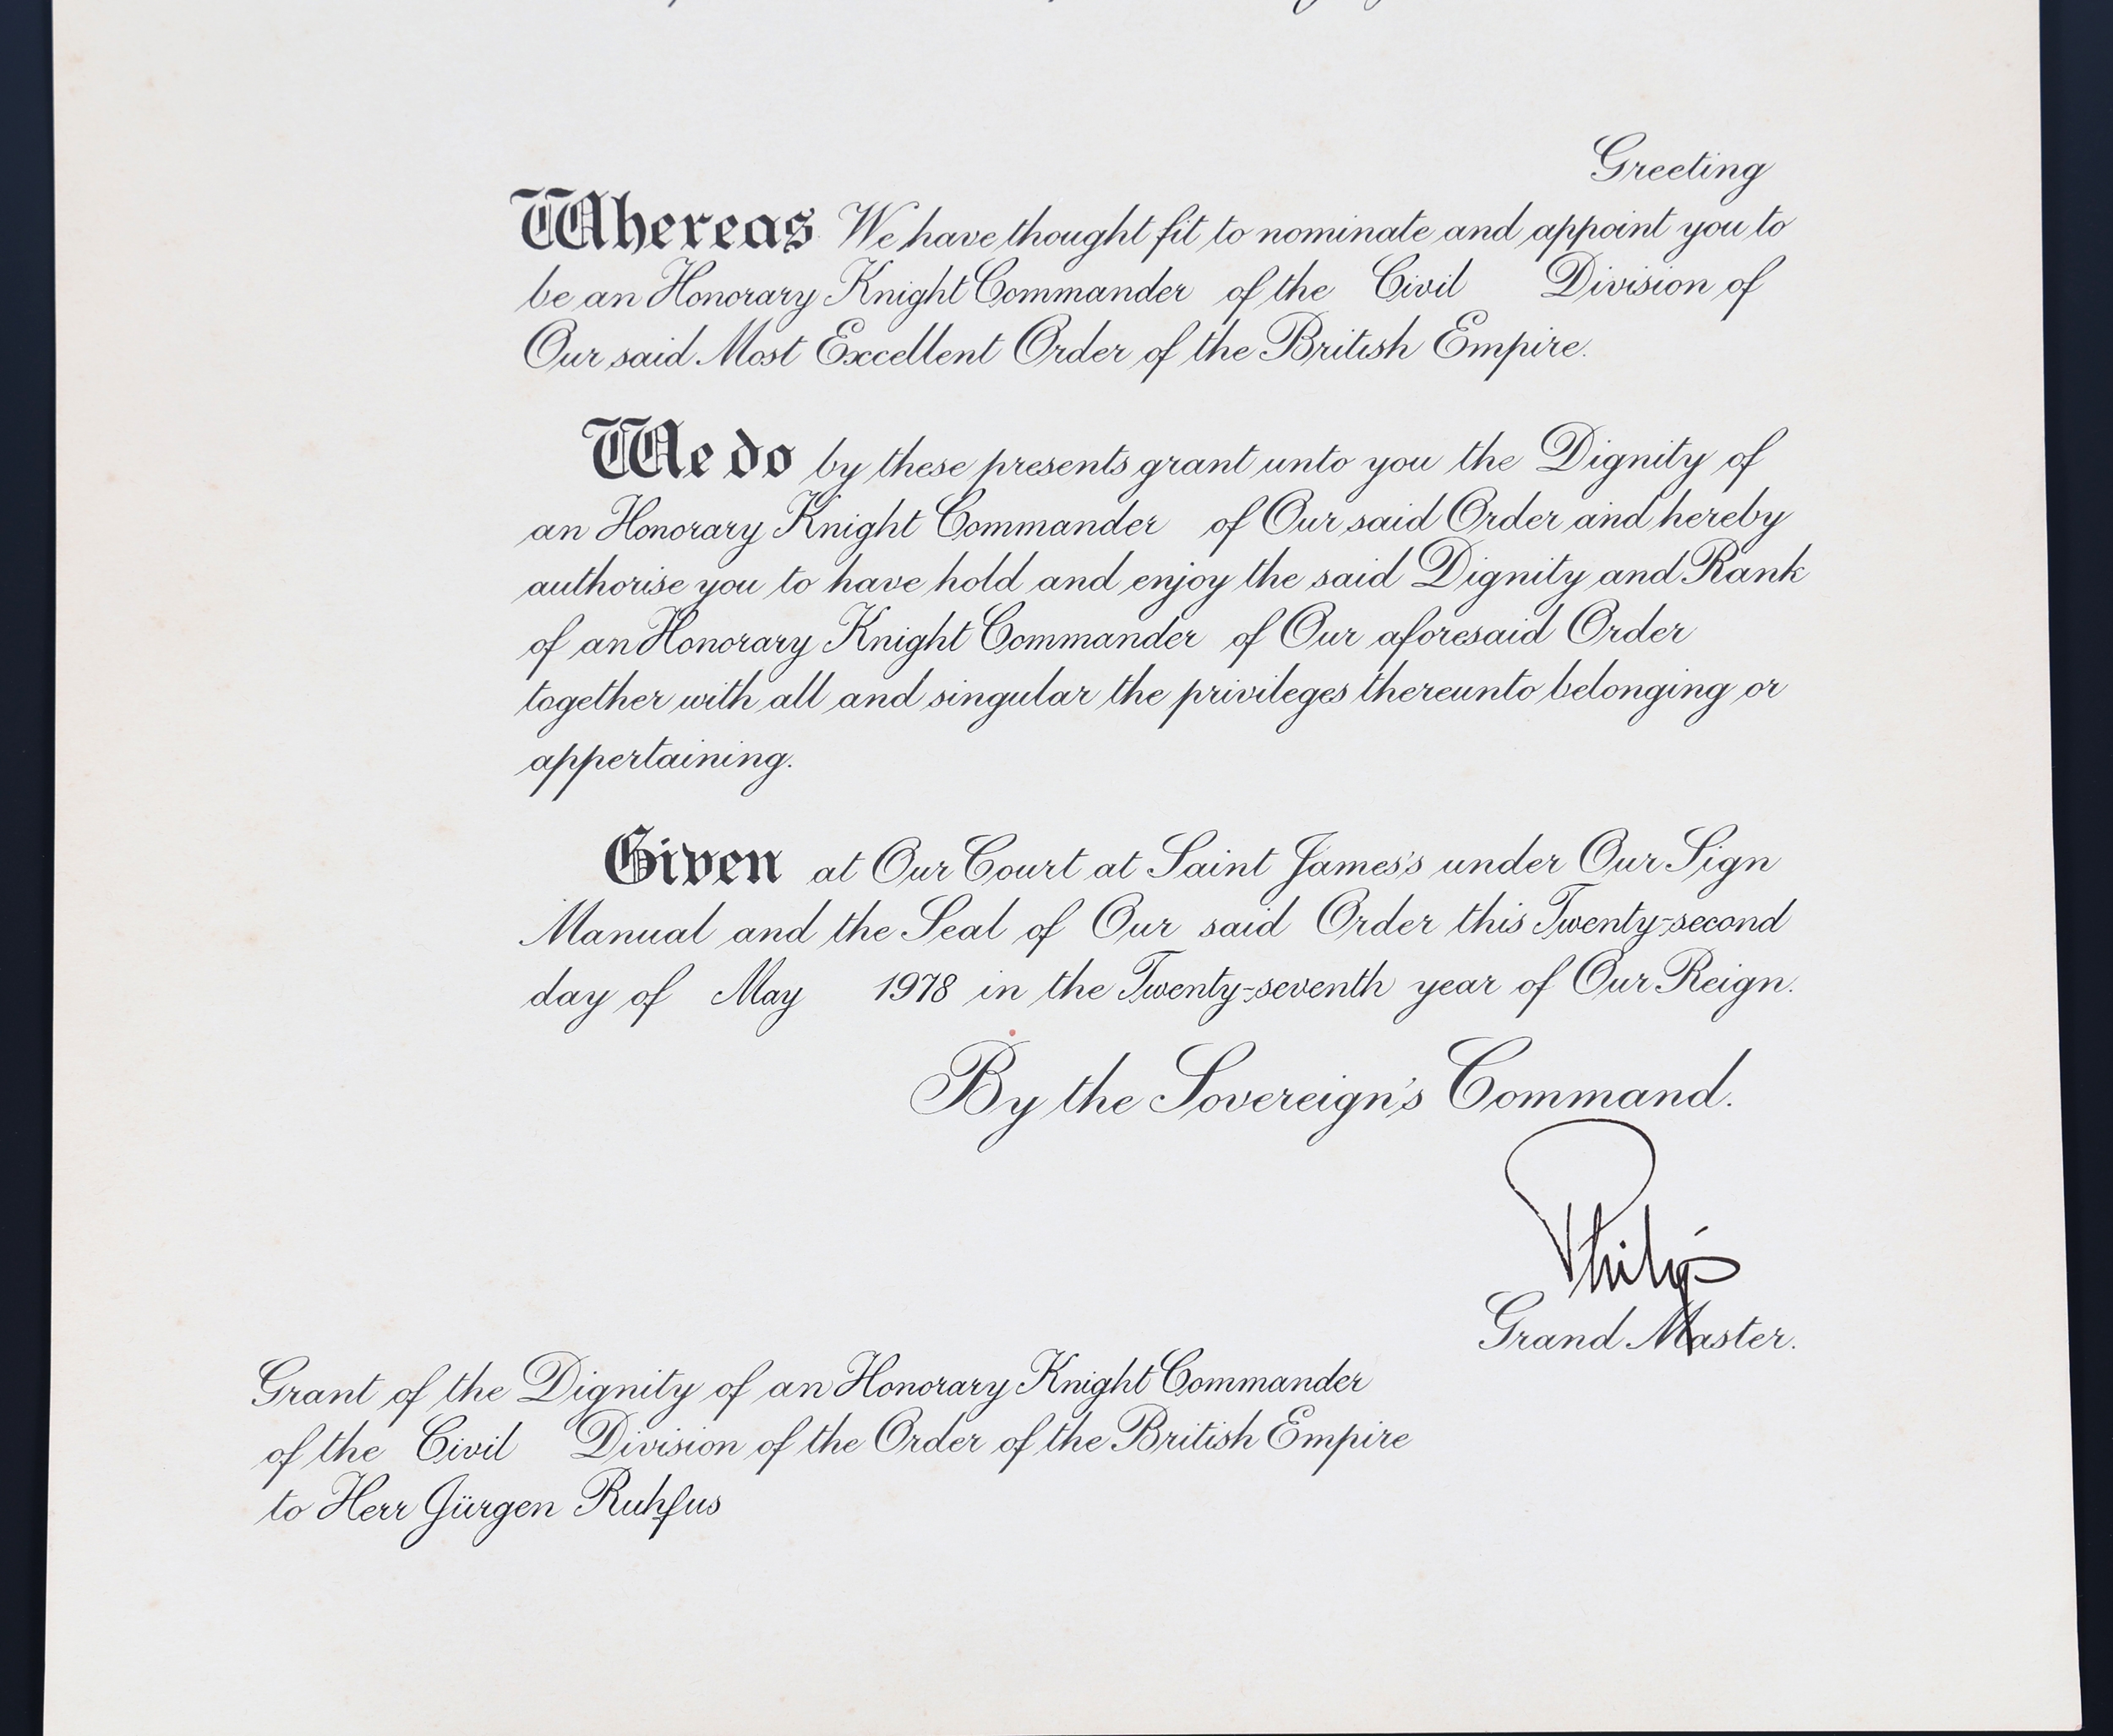 Greeting
Whereas We have thought fit to nominate and appoint you to
be an Honorary Knight Commander of the Civil Division of
Our said Most Excellent Order of the British Empire.
We do by these presents grant unto you the Dignity of
an Honorary Knight Commander of Our said Order and hereby
authorise you to have hold and enjoy the said Dignity and Rank
of an Honorary Knight Commander of Our aforesaid Order
together with all and singular the privileges thereunto belonging or
appertaining.
Given at Our Court at Saint James's under Our Sign
Manual and the Seal of Our said Order this Twenty-second
day of May 1978 in the Twenty-seventh year of Our Reign.
By the Sovereign's Command.
Philip
Grand Master.
Grant of the Dignity of an Honorary Knight Commander
of the Civil Division of the Order of the British Empire
to Herr Jürgen Ruhfus